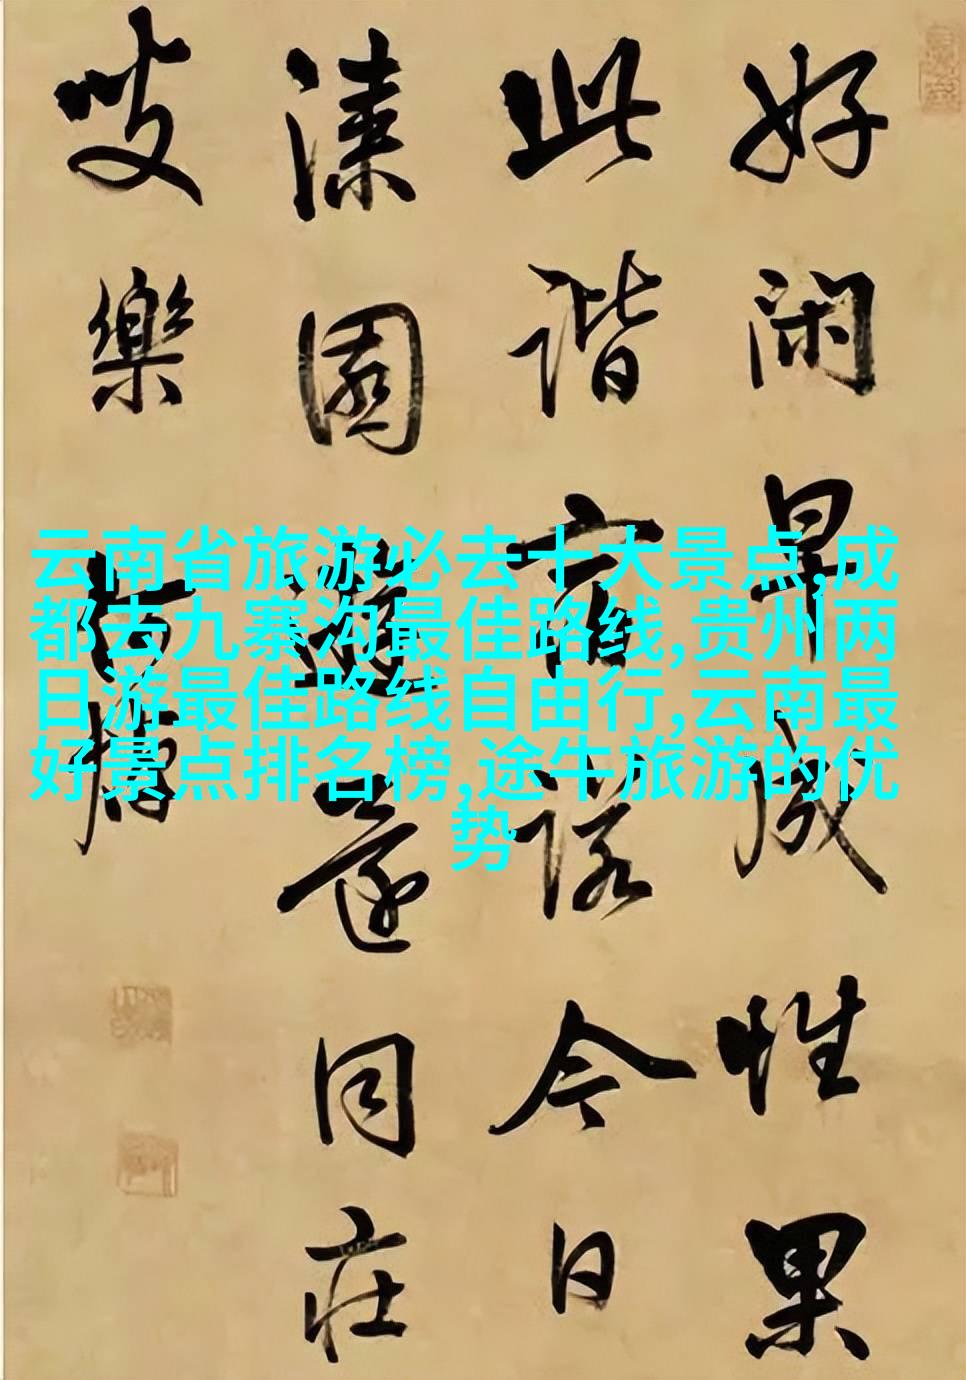 好闲早成性果
此谐宿诺今日
漆園遊還同庄
叟樂
云南省旅游必去十大景点,成
都去九寨沟最佳路线,贵州两
日游最佳路线自由行,云南最
好景点排名榜,途牛旅游的优
势